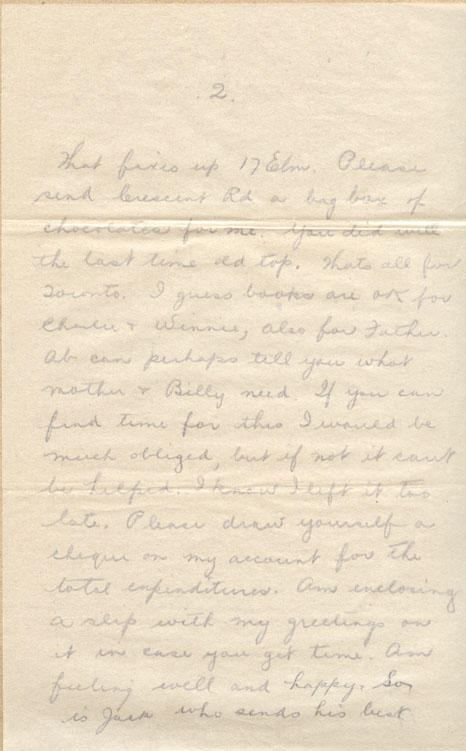 2.
That fixes up 17 Elm. Please
send Crescent Rd a big box of
chocolates for me. You did well
the last time old top. Thats all for
Toronto. I guess books are OK for
Charlie & Winnie, also for Father.
Ab can perhaps tell you what
mother & Billy need. If you can
find time for this I would be
much obliged, but if not it can't
be helped. I know I left it too
late. Please draw yourself a
cheque on my account for the
total expenditures. Am enclosing
a slip with my greetings on
it in case you get time. Am
feeling well and happy. So
is Jack who sends his best